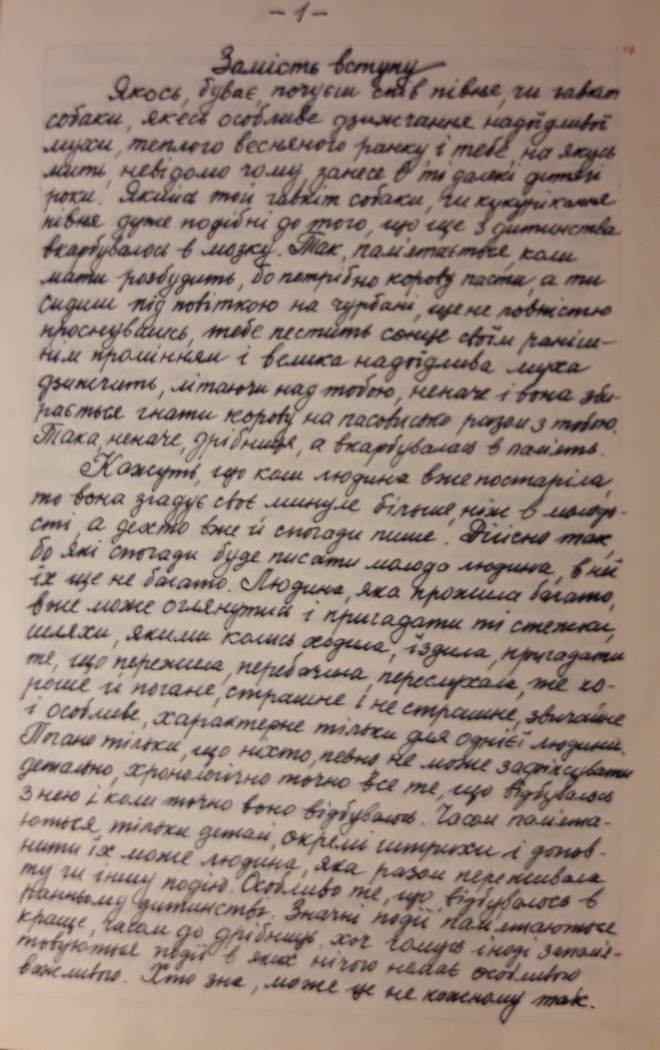 - 1 -
Замість вступу
Якось, буває, почуєш спів півня, чи гавкіт
собаки, якесь особливе дзижчання надоїдливої
мухи, теплого весняного ранку і тебе, на якусь
мить, невідомо чому, занесе в ті далекі дитячі
роки. Який той гавкіт собаки, чи кукурікання
півня дуже подібні до того, що ще з дитинства
вкарбувалось в мозку. Так, пам'ятається, коли
мати розбудить, бо потрібно корову пасти, а ти
сидиш під повіткою на чурбані, ще не повністю
проснувшись, тебе пестить сонце своїм раніш-
нім промінням і велика надоїдлива муха
дзижчить, літаючи над тобою, неначе і вона зби-
рається гнати корову на пасовисько разом з тобою.
Така, неначе, дрібниця, а вкарбувалась в пам'ять.
Кажуть, що коли людина вже постаріла,
то вона згадує своє минуле більше, ніж в молодо-
сті, а дехто вже й спогади пише. Дійсно так,
бо, які спогади буде писати молода людина, в неї
їх ще не багато. Людина, яка прожила багато,
вже може оглянутись і пригадати ті стежки,
шляхи, якими колись ходила, їздила, пригадати
те, що пережила, перебачила, переслухала, те хо-
роше й погане, страшне і не страшне, звичайне
і особливе, характерне тільки для однієї людини.
Погано тільки, що ніхто, певно не може зафіксувати
детально, хронологічно точно все те, що відбувалось
з нею і коли точно воно відбувалось. Часом пам'ята-
ються, тільки деталі, окремі штрихи і допов-
нити їх може людина, яка разом переживала
ту чи іншу подію. Особливо те, що відбувалось в
ранньому дитинстві. Значні події пам'ятаються
краще, часом до дрібниць, хоч чомусь іноді запам'я-
товуються події в яких нічого немає особливого
важливого. Хто зна, може це не кожному так.